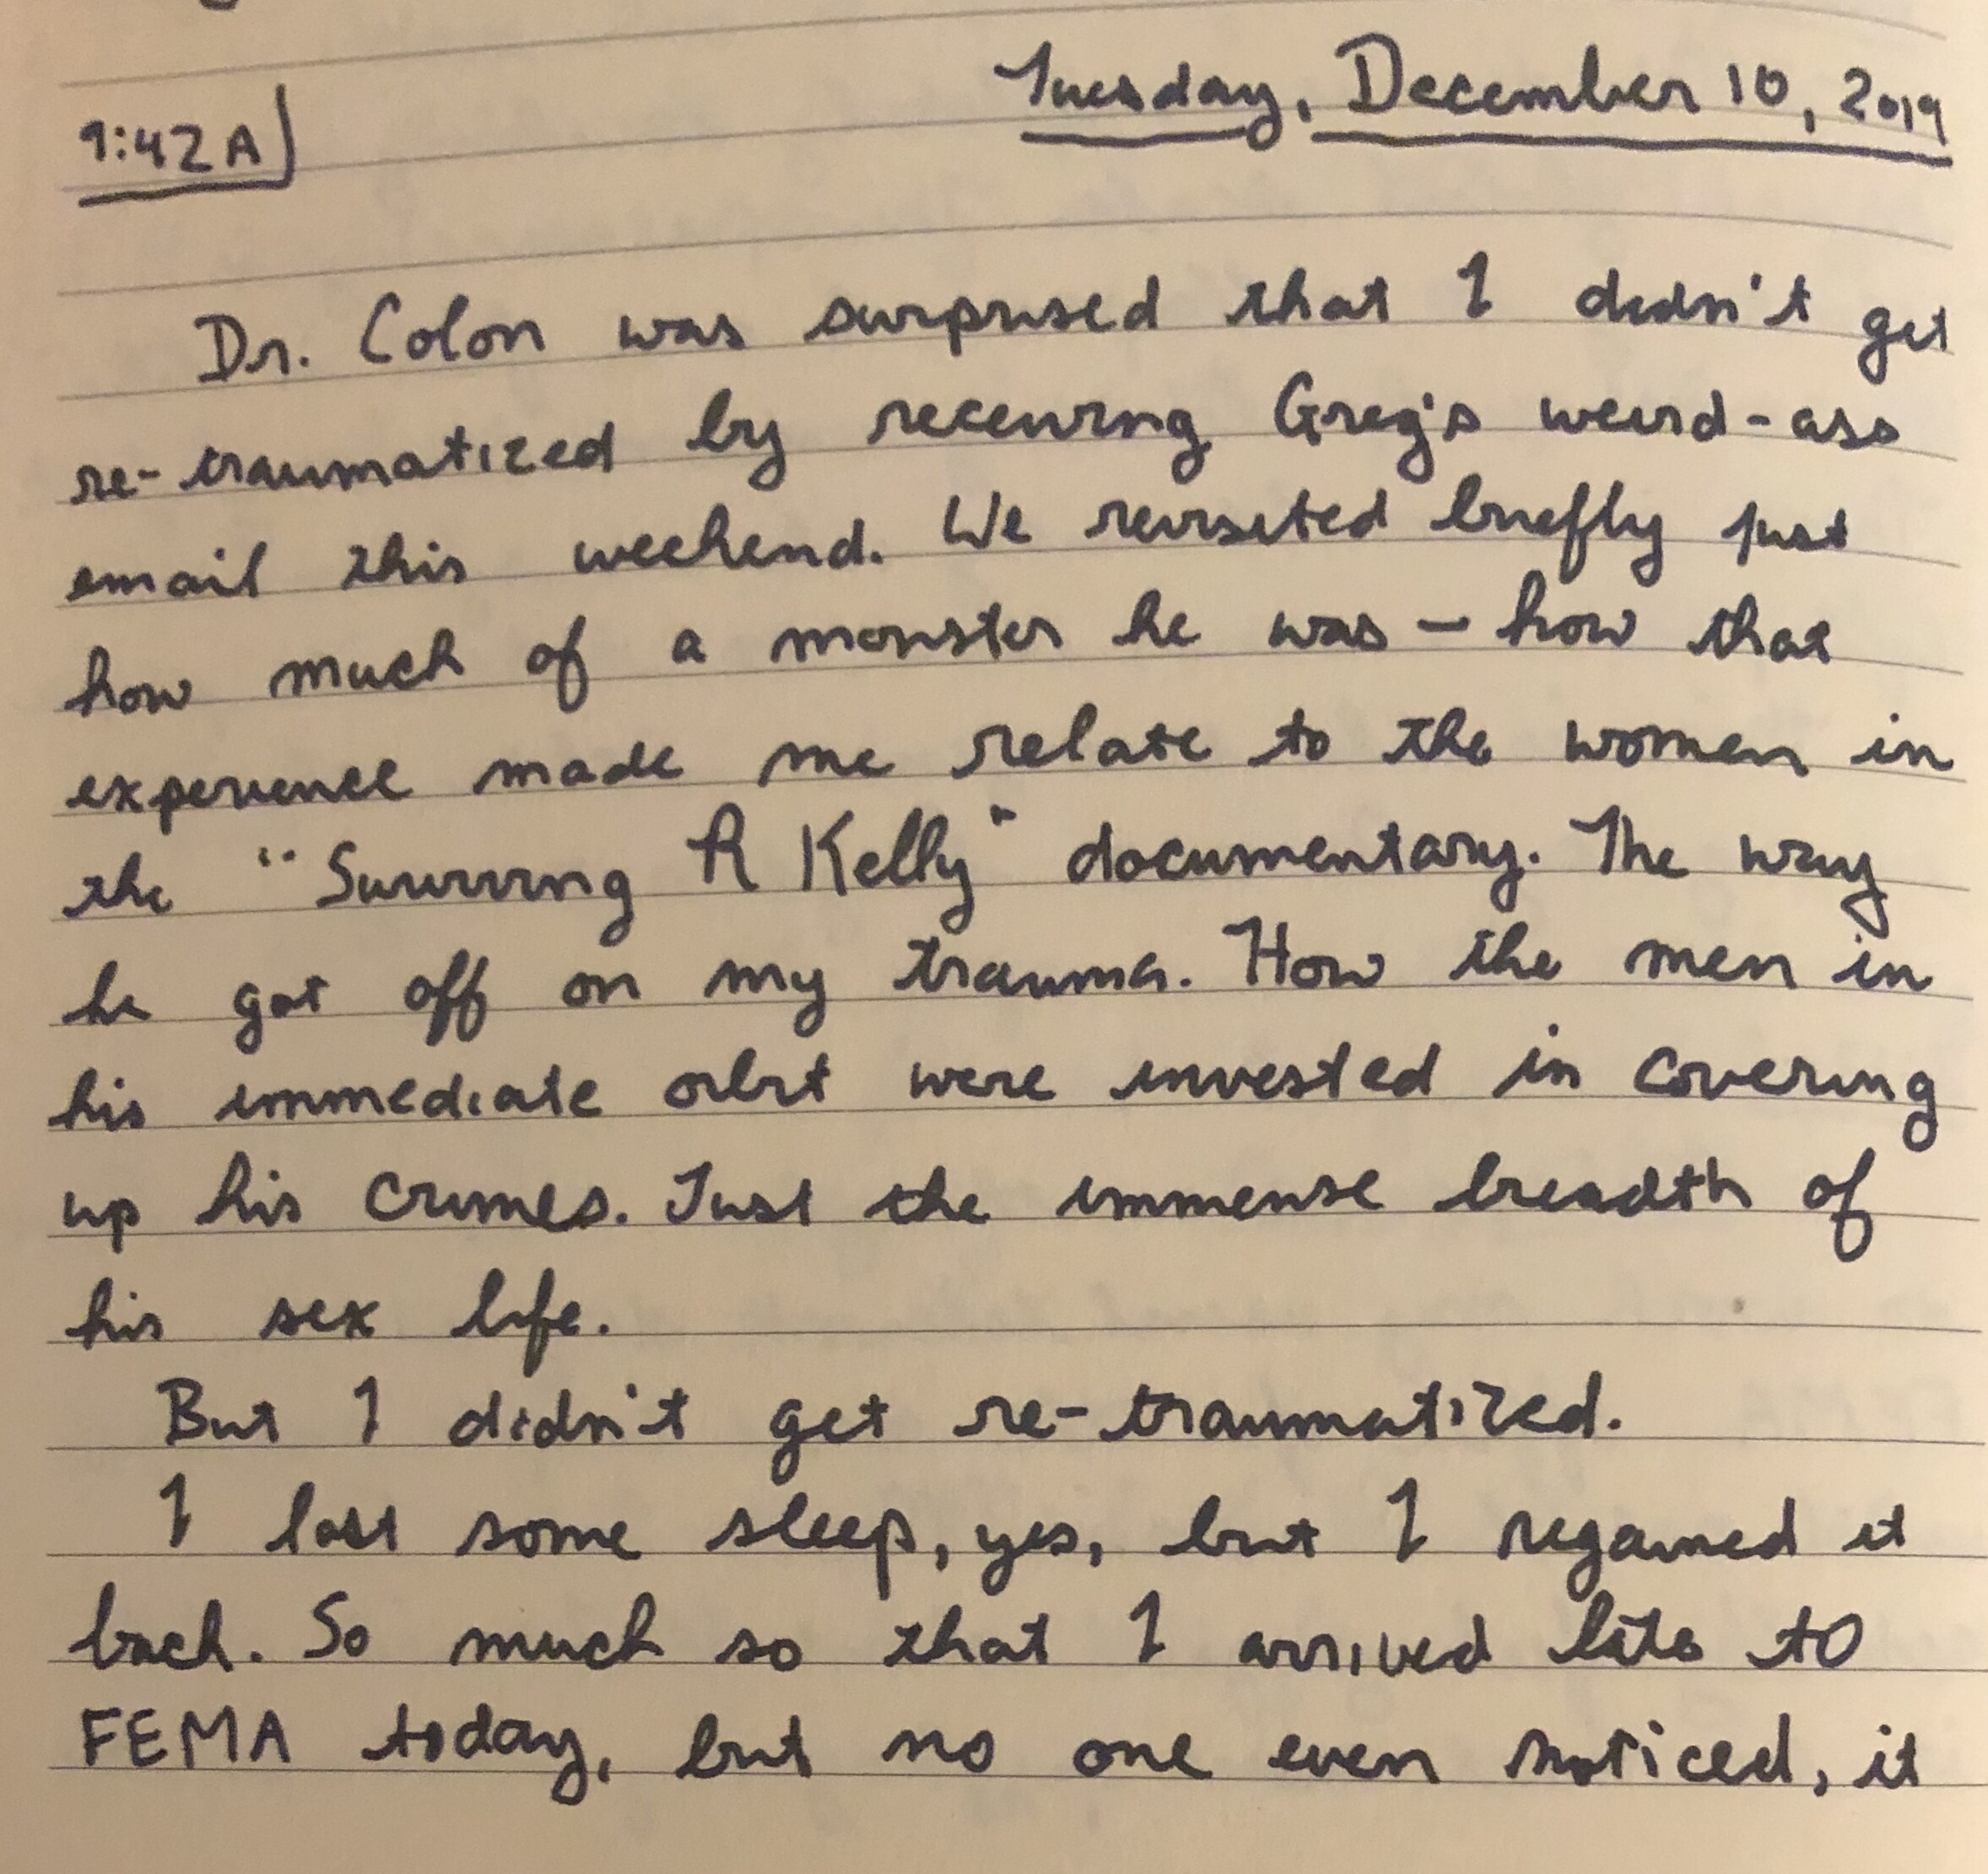 Tuesday, December 10, 2019
9:42A
Dr. Colon was surprised that I didn't get
re-traumatized by receiving Greg's weird-ass
email this weekend. We revisited briefly just
how much of a monster he was — how that
experience made me relate to the women in
the "Surviving R Kelly" documentary. The way
he got off on my trauma. How the men in
his immediate orbit were invested in covering
up his crimes. Just the immense breadth of
his sex life.
But I didn't get re-traumatized.
I lost some sleep, yes, but I regained it
back. So much so that I arrived late to
FEMA today, but no one even noticed, it